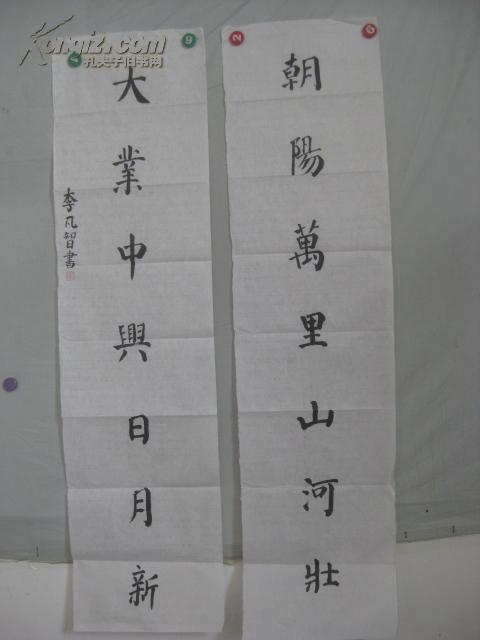 朝陽萬里山河壯
大業中興日月新
李凡智書
Kongfz.com
孔夫子旧书网
2
6
9